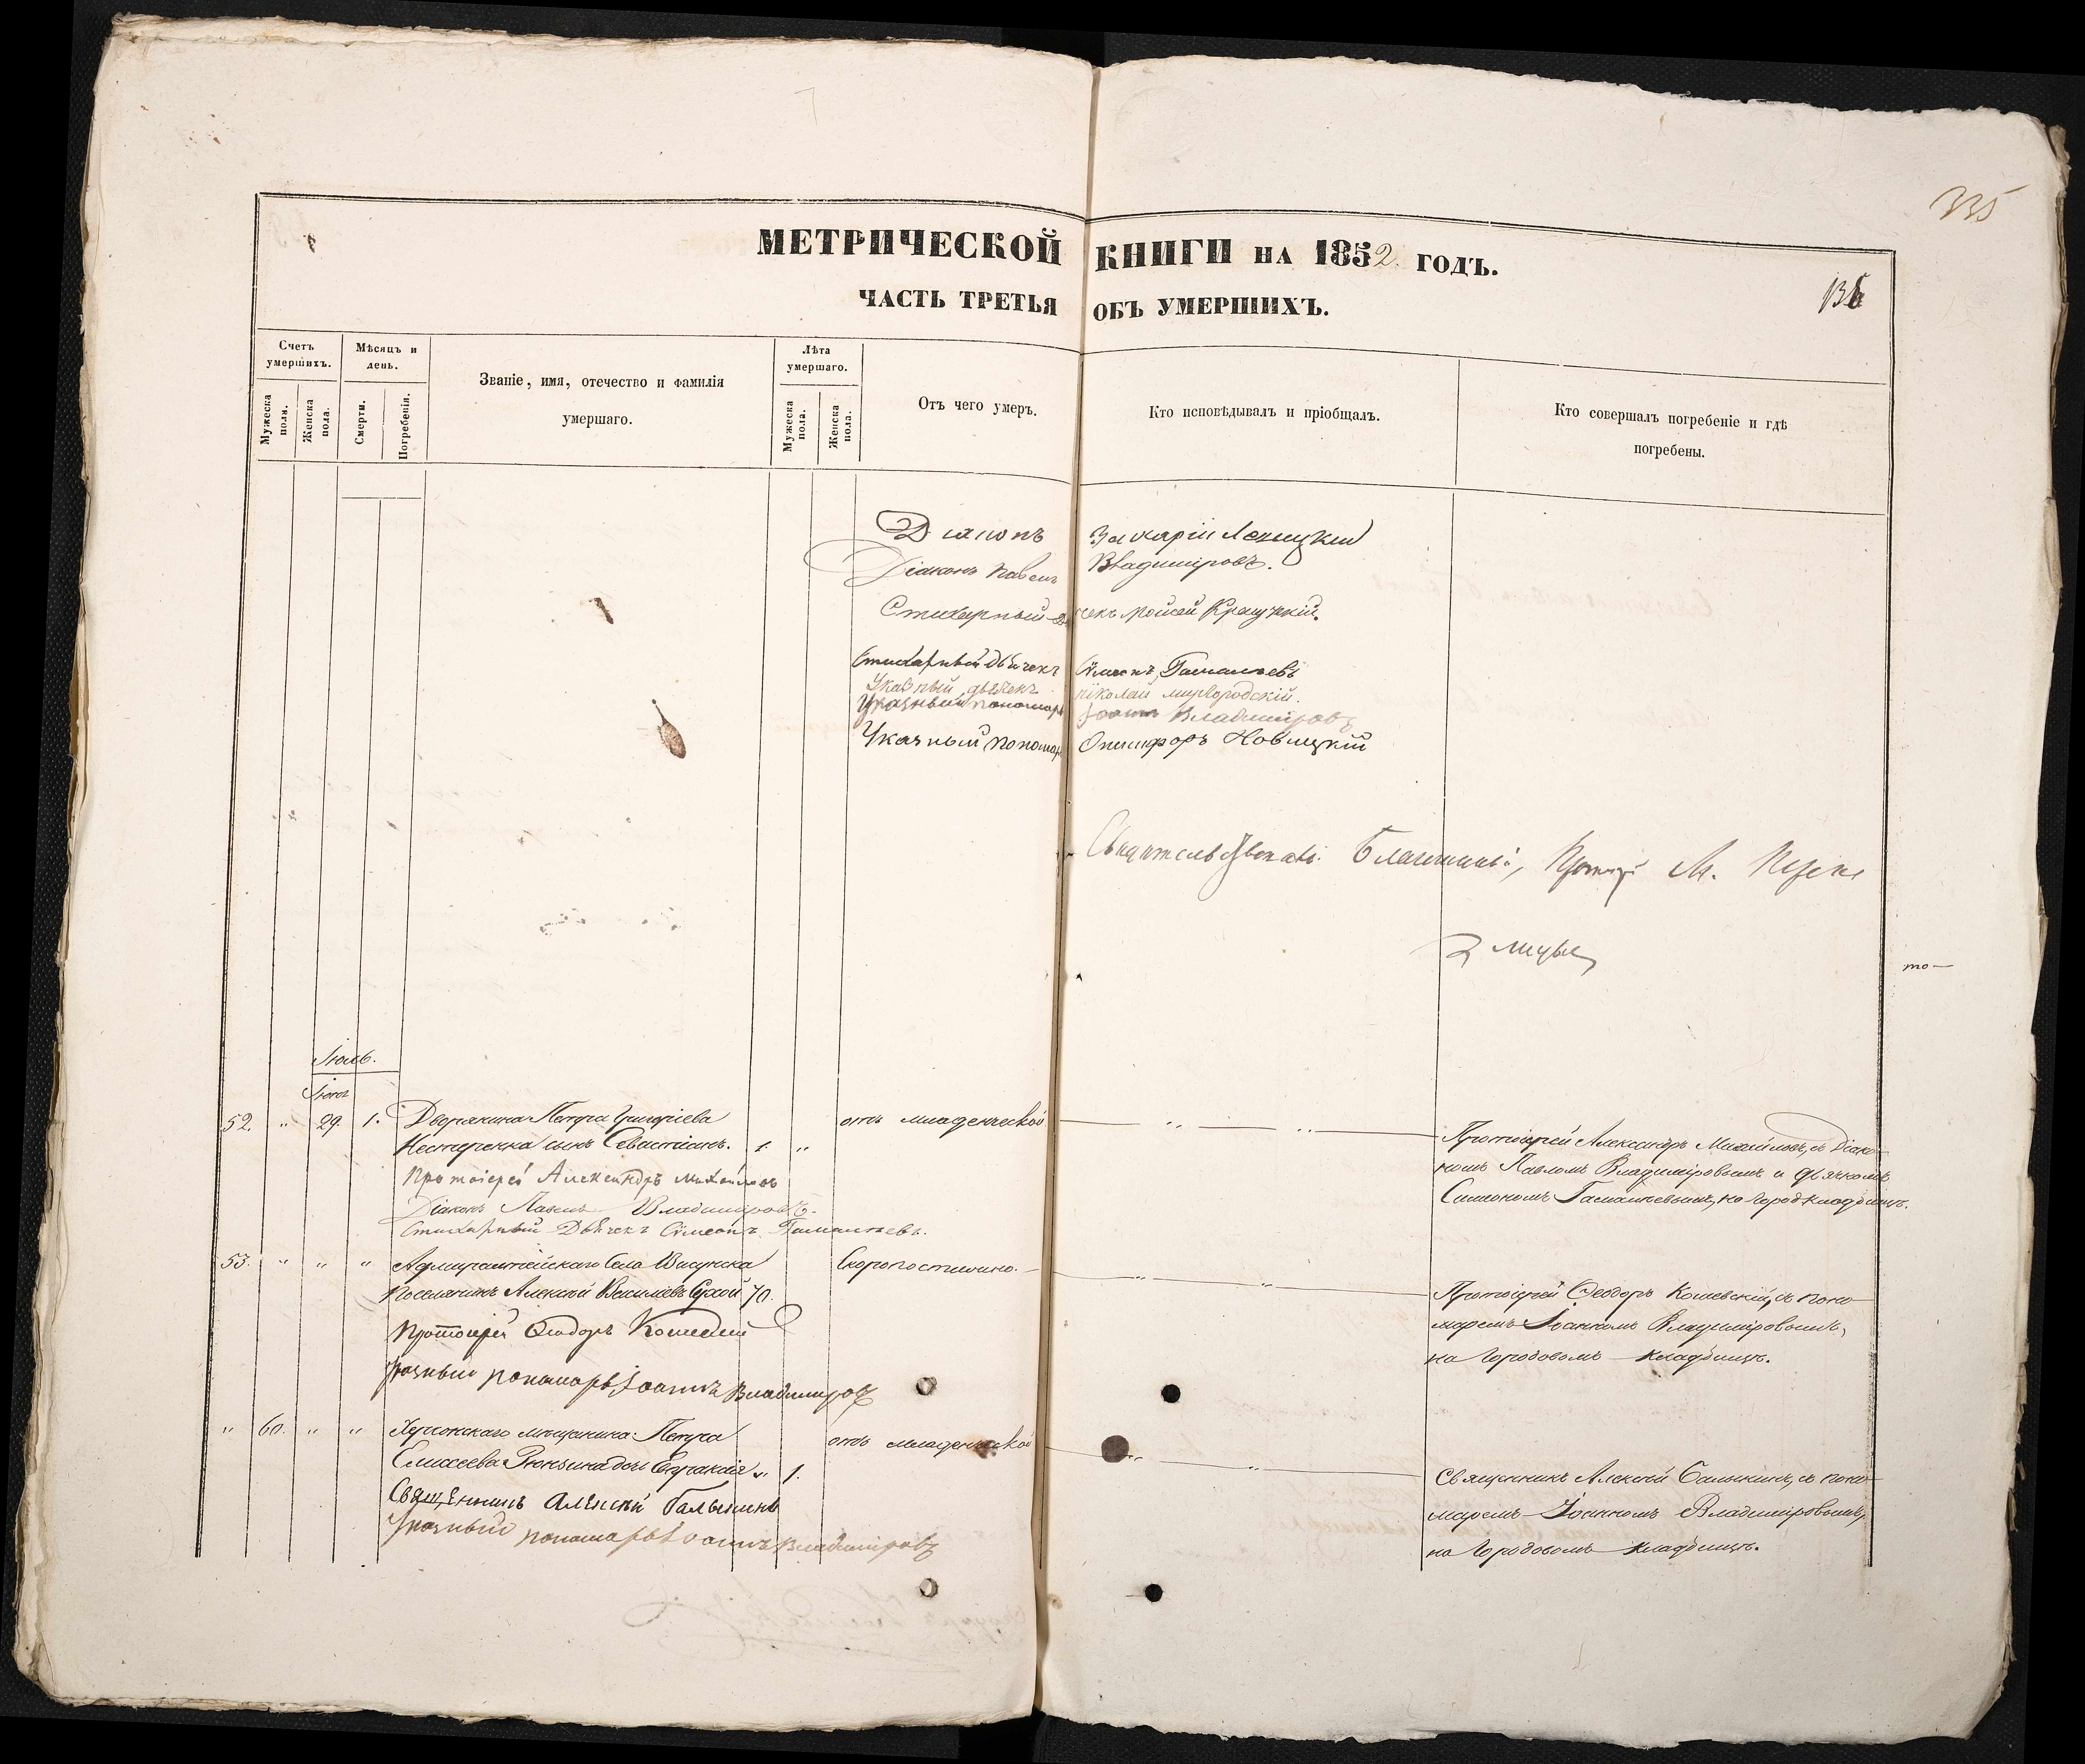 335
МЕТРИЧЕСКОЙ КНИГИ НА 1852 ГОДЪ.
136
ЧАСТЬ ТРЕТЬЯ ОБЪ УМЕРШИХЪ.
Счетъ умершихъ.
Мѣсяцъ и день.
Званіе, имя, отечество и фамилія умершаго.
Лѣта умершаго.
Отъ чего умеръ.
Кто исповѣдывалъ и пріобщалъ.
Кто совершалъ погребеніе и гдѣ погребены.
Мужеска пола.
Женска пола.
Смерти.
Погребенія.
Мужеска пола.
Женска пола.
Діаконъ Захарій
Діаконъ Павелъ Владиміровъ.
Стихарный дьячекъ Моисей
Стихарный Дьячекъ Симеонъ Гамалѣевъ
Указный дьячекъ Николай Миргородскій.
Указный пономарь Іоаннъ Владиміровъ
Указный пономарь Онисифоръ Новицкій
Свидѣтельствовалъ: Благочинный, Протоіерей М.
то—
Іюль.
Іюня
52. " 29. 1. Дворянина Петра Григоріева
Нестеренка сынъ Севастіанъ. 1. " отъ младенческой " "
Протоіерей Александръ Михайловъ, съ Діако-
номъ Павломъ Владиміровымъ и дьячкомъ
Симеономъ Гамалѣевымъ, на город. кладбищѣ.
Протоіерей Александръ Михайловъ
Діаконъ Павелъ Владиміровъ.
Стихарный Дьячекъ Симеонъ Гамалѣевъ.
53. " " " Адмиралтейскаго Села Висунска
поселянинъ Алексѣй Василіевъ Сухой 70. Скоропостижно. " "
Протоіерей Ѳеодоръ Кошевскій, съ поно-
маремъ Іоанномъ Владиміровымъ,
на Городовомъ кладбищѣ.
Протоіерей Ѳеодоръ Кошевскій
Указный пономарь Іоаннъ Владиміровъ
" 60. " " Херсонскаго мѣщанина Петра
Елисеева дочь " 1. отъ младенческой " "
Священникъ Алексѣй Балыкинъ, съ поно-
маремъ Іоанномъ Владиміровымъ,
на Городовомъ кладбищѣ.
Священникъ Алексѣй
Указный пономарь Іоаннъ Владиміровъ